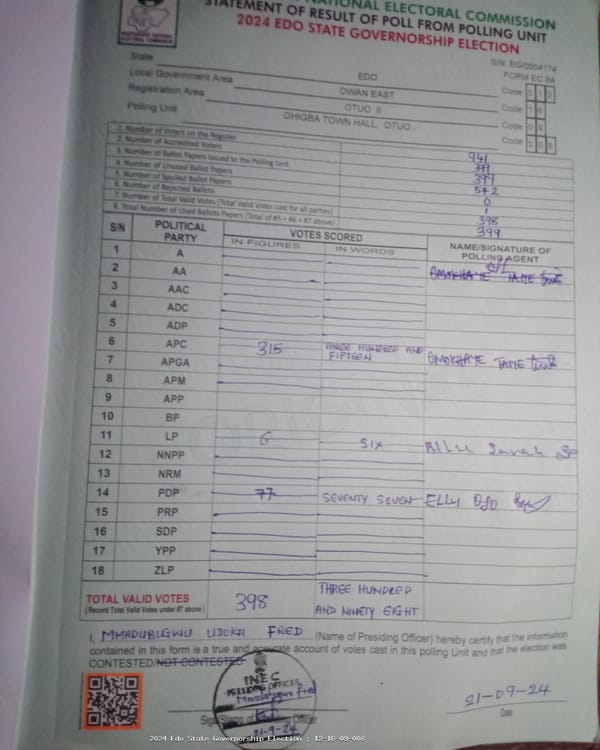 NATIONAL ELECTORAL COMMISSION
STATEMENT OF RESULT OF POLL FROM POLLING UNIT
2024 EDO STATE GOVERNORSHIP ELECTION
INEC
S/N: EG/0004174
FORM EC 8A
State EDO Code 012
Local Government Area OWAN EAST Code 16
Registration Area OTUO II Code 09
Polling Unit OHIGBA TOWN HALL, OTUO Code 008
1. Number of Voters on the Register 941
2. Number of Accredited Voters 399
3. Number of Ballot Papers Issued to the Polling Unit
4. Number of Unused Ballot Papers 542
5. Number of Spoiled Ballot Papers 0
6. Number of Rejected Ballots 1
7. Number of Total Valid Votes (Total Valid Votes cast for all parties) 398
8. Total Number of Used Ballots Papers (Total of #5 + #6 + #7 above) 399
S/N POLITICAL PARTY VOTES SCORED NAME/SIGNATURE OF POLLING AGENT
IN FIGURES IN WORDS
1 A
2 AA OMOKHAYE TAME
3 AAC
4 ADC
5 ADP
6 APC 315 THREE HUNDRED AND FIFTEEN OMOKHAYE TAME
7 APGA
8 APM
9 APP
10 BP
11 LP 6 SIX
12 NNPP
13 NRM
14 PDP 77 SEVENTY SEVEN ELLY OJO
15 PRP
16 SDP
17 YPP
18 ZLP
TOTAL VALID VOTES 398 THREE HUNDRED AND NINETY EIGHT
(Record Total Valid Votes under #7 above)
I, MMADUBUGWU UDOKA FRED (Name of Presiding Officer) hereby certify that the information
contained in this form is a true and accurate account of votes cast in this polling Unit and that the election was
CONTESTED/NOT CONTESTED
INEC
PRESIDING OFFICER
21-9-24
21-09-24
Date
2024 Edo State Governorship Election : 12-16-09-008